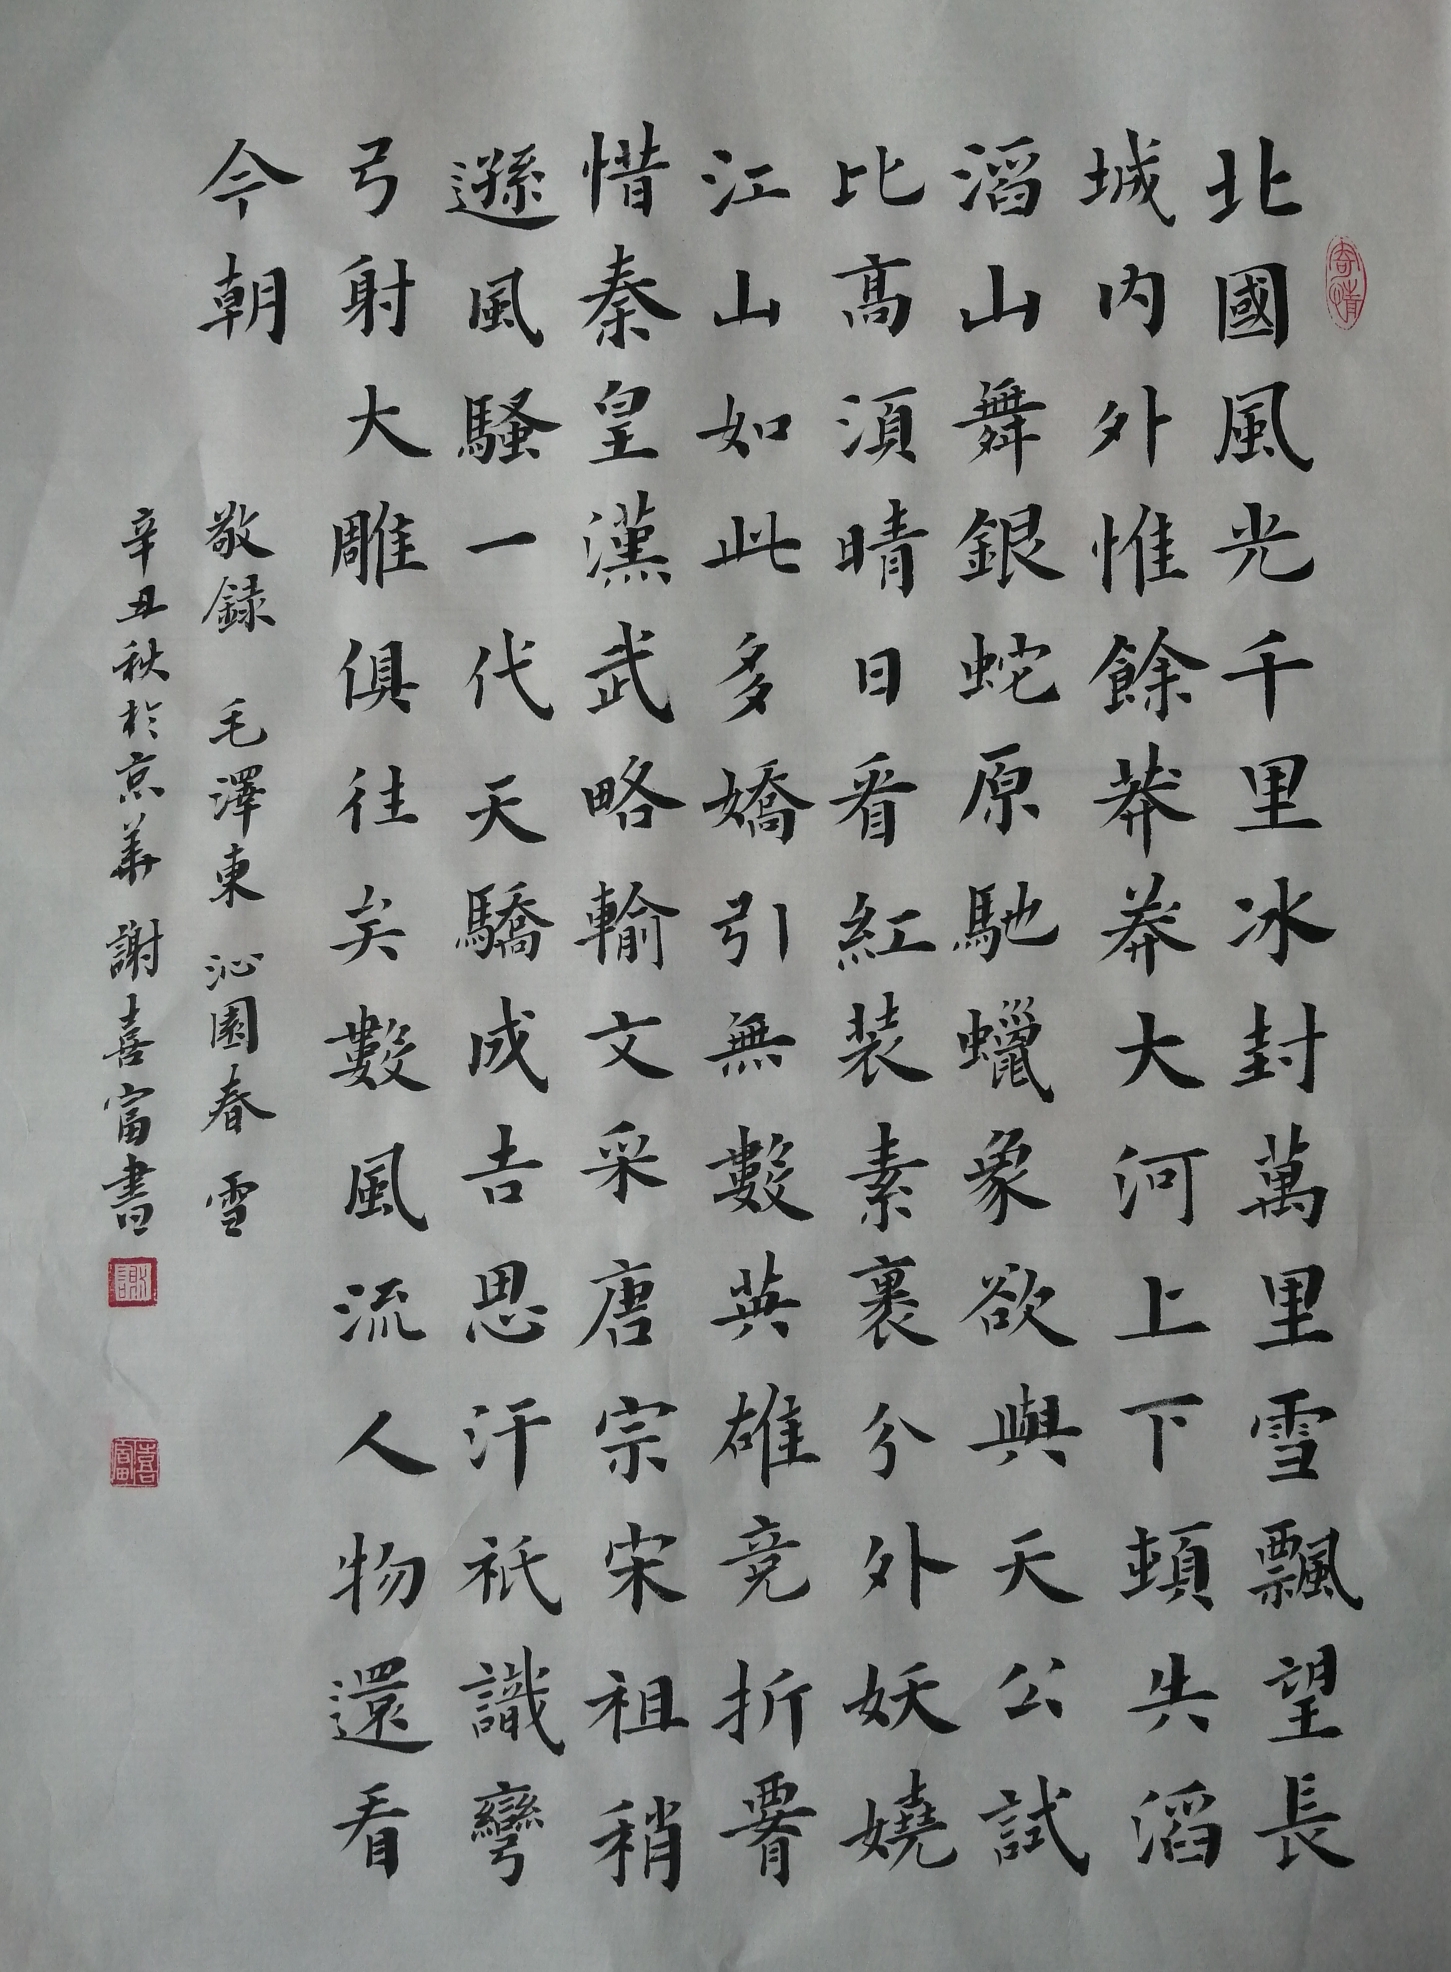 寄情
北國風光千里冰封萬里雪飄望長
城内外惟餘莽莽大河上下頓失滔
滔山舞銀蛇原馳蠟象欲與天公試
比高須晴日看紅装素裹分外妖嬈
江山如此多嬌引無數英雄竞折腰
惜秦皇漢武略輸文采唐宗宋祖稍
遜風騷一代天驕成吉思汗祇識彎
弓射大雕俱往矣數風流人物還看
今朝
敬録 毛澤東 沁園春 雪
辛丑秋於京華 謝喜富書
謝
喜富